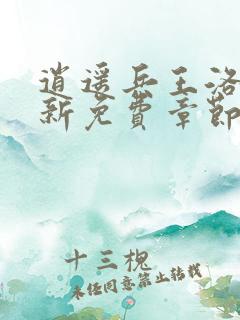 逍遥兵王洛
新免费章节
十三槐
未经同意禁止转载